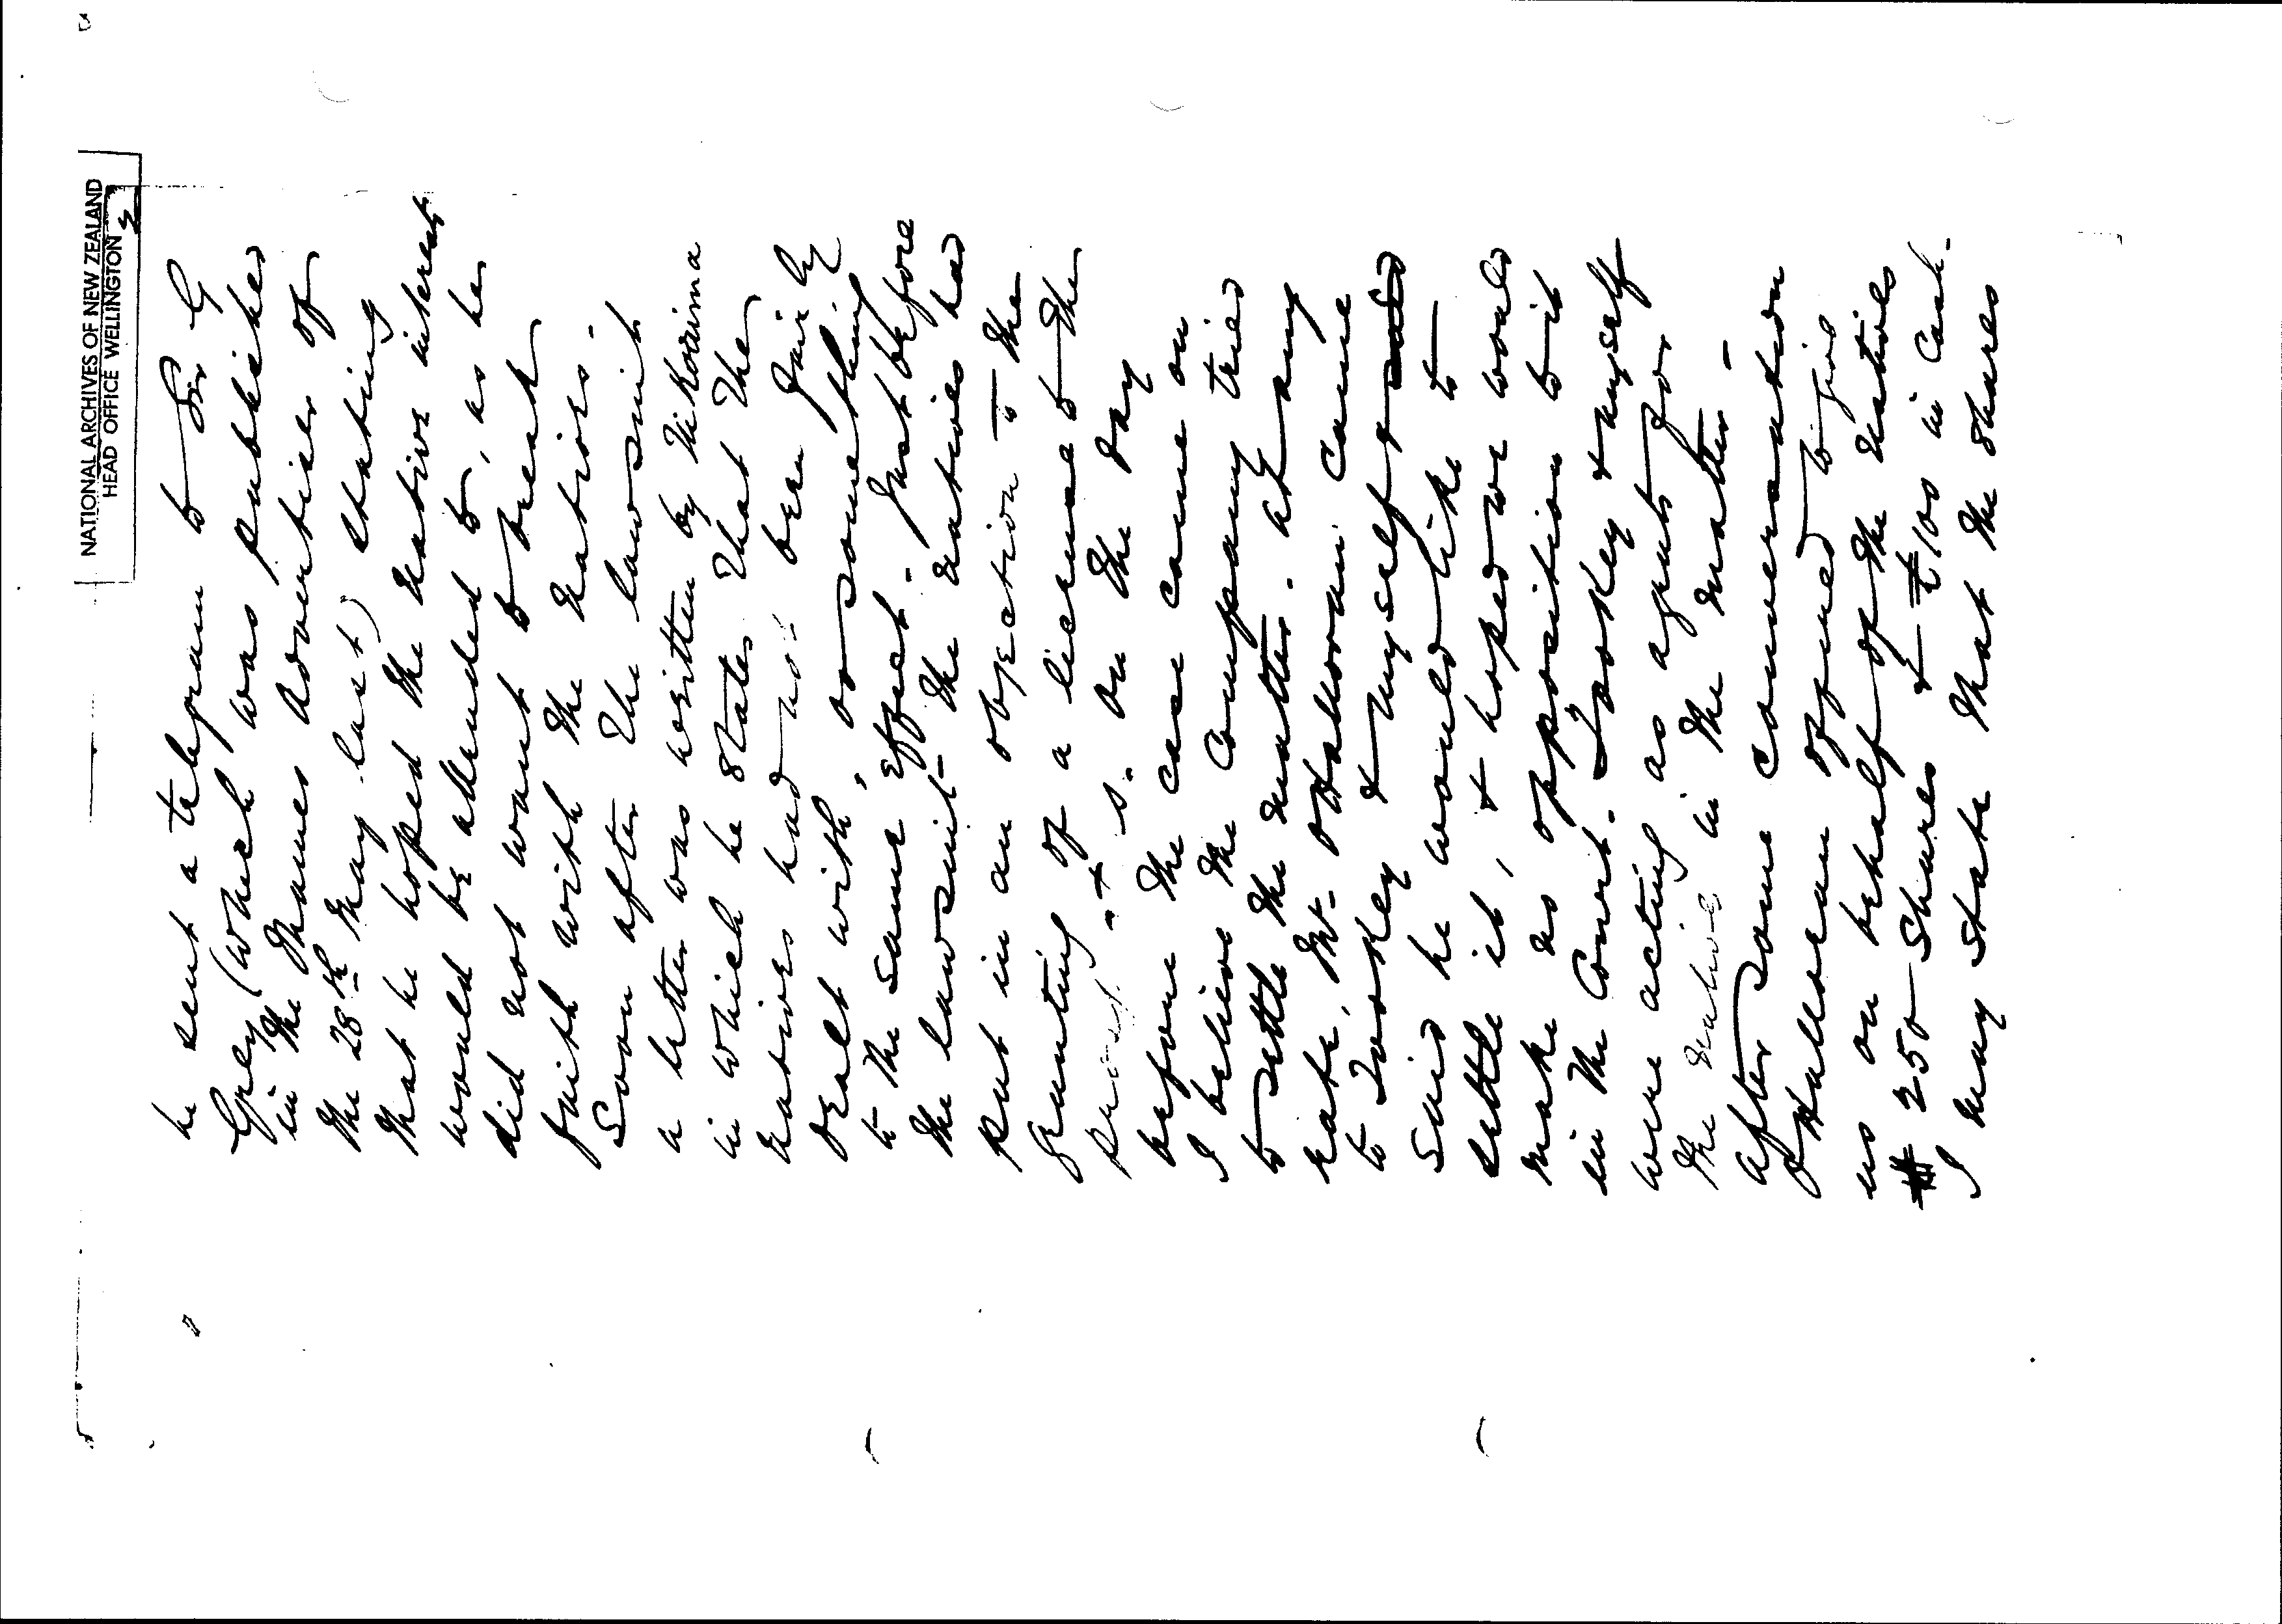 NATIONAL ARCHIVES OF NEW ZEALAND
HEAD OFFICE WELLINGTON
he sent a telegram to Sir G
Grey (which was published
in the Thames Advertiser of
the 28th May last) stating
that he hoped the natives interests
would be attended to, as he
did not want to break
faith with the natives.
Soon after the lawsuit
a letter was written by
in which he states that the
natives had not been fairly
dealt with, or something
to the same effect. Just before
the lawsuit the natives had
put in an objection to the
granting of a license to the
on the day
before the case came on
I believe the Company tried
to settle the matter. At any
rate, Mr. OHalloran came
to Tookey & myself &
said he would like to
settle it, & hoped we would
make no opposition to it
in the Court. Tookey & myself
were acting as agents for
the natives in the matter -
After some conversation
OHalloran offered to give
us on behalf of the natives
250 Shares & £100 in Cash -
I may state that the shares